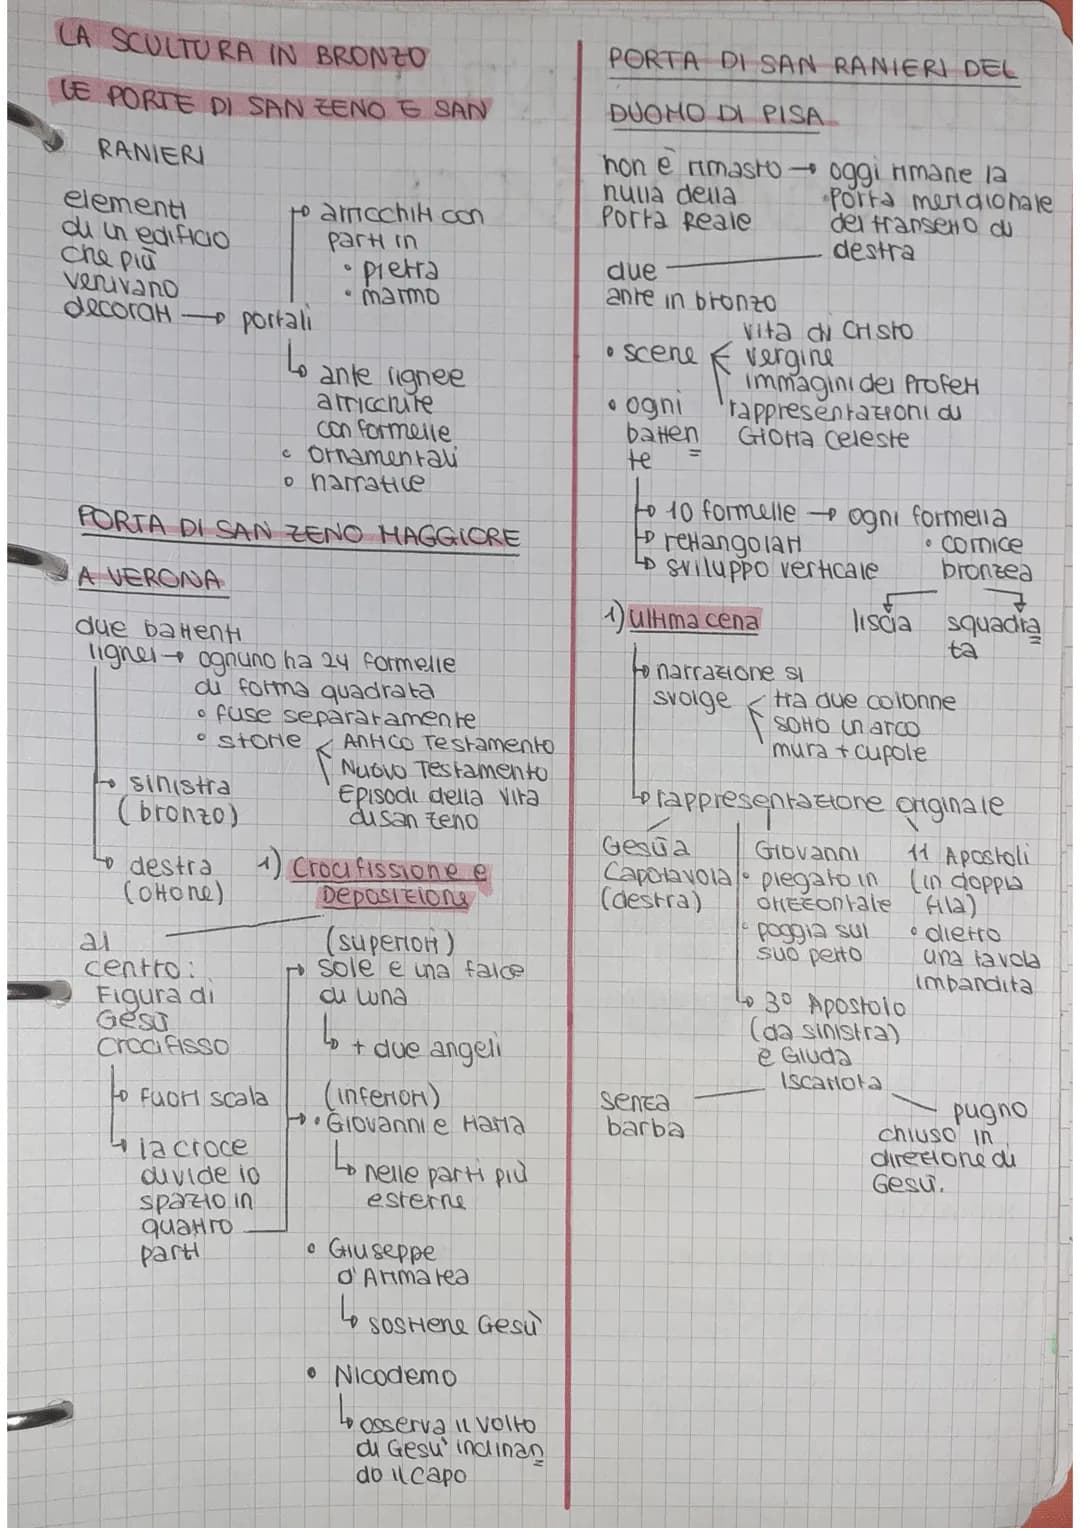 LA SCULTURA IN BRONZO
LE PORTE DI SAN ZENO E SAN
RANIERI
elementi
di un edificio
che più
venivano
decorati → portali
arricchiti con
parti in
• pietra
• marmo
ante lignee
arricchite
con formelle
• ornamentali
• narrative
PORTA DI SAN ZENO MAGGIORE
A VERONA
due battenti
lignei → ognuno ha 24 formelle
di forma quadrata
• fuse separatamente
• storie
Antico Testamento
Nuovo Testamento
Episodi della vita
di San Zeno
sinistra
(bronzo)
destra
(ottone)
1) Crocifissione e
Deposizione
al
centro:
Figura di
Gesù
Crocifisso
fuori scala
la croce
divide lo
spazio in
quattro
parti
(superiori)
sole e una falce
di luna
+ due angeli
(inferiori)
• Giovanni e Maria
nelle parti più
esterne
• Giuseppe
d'Arimatea
sostiene Gesù
• Nicodemo
osserva il volto
di Gesù inclinan
do il capo
PORTA DI SAN RANIERI DEL
DUOMO DI PISA
non è rimasto → oggi rimane la
nulla della
Porta Reale
porta meridionale
del transetto di
destra
due
ante in bronzo
• scene
vita di Cristo
vergine
immagini dei Profeti
rappresentazioni di
Gloria Celeste
• ogni
batten
te
10 formelle → ogni formella
rettangolari
sviluppo verticale
• cornice
bronzea
liscia
squadra
ta
1) Ultima cena
narrazione si
svolge
tra due colonne
sotto un arco
mura + cupole
rappresentazione originale
Gesù a
Capotavola
(destra)
Giovanni
• piegato in
orizzontale
• poggia sul
suo petto
11 Apostoli
(in doppia
fila)
• dietro
una tavola
imbandita
3° Apostolo
(da sinistra)
è Giuda
Iscariota
senza
barba
pugno
chiuso in
direzione di
Gesù.